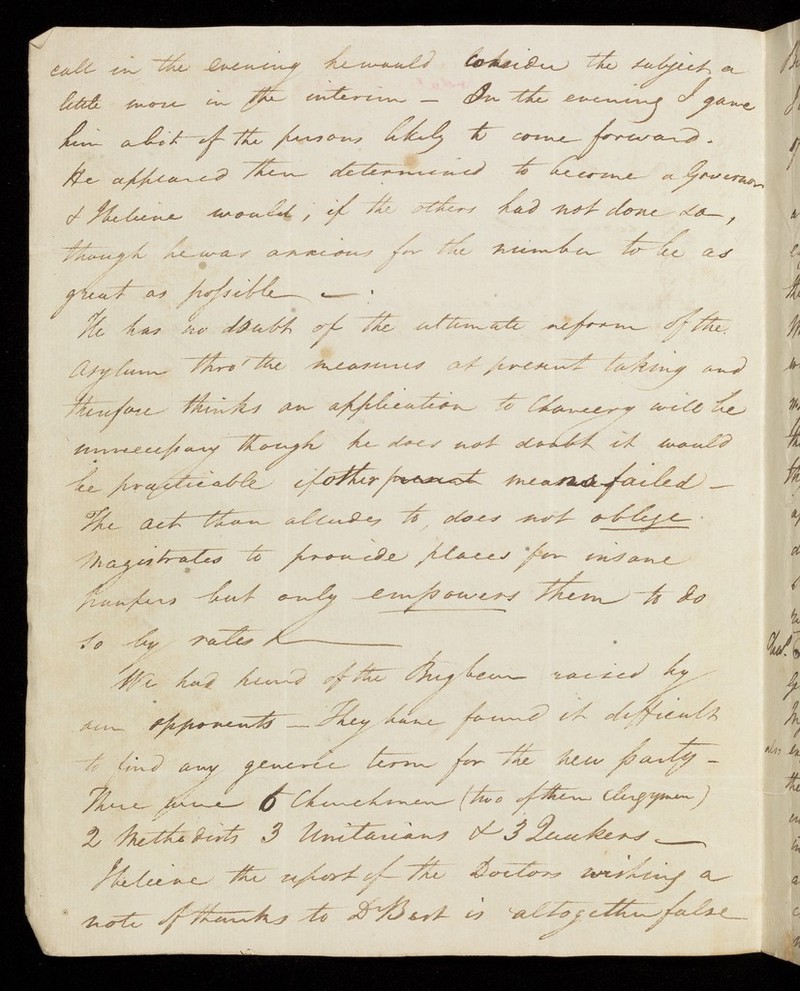 call in the evening he would consider the subject a
little more in the interim – In the evening I gave
him a list of the persons likely to come forward.
He appeared then determined to become a Governor
& I believe would, if the others had not done so –,
though he was anxious for the number to be as
great as possible –.
He has no doubt of the ultimate reform of the
Asylum thro' the measures at present taking and
therefore thinks an application to Chancery will be
unnecessary though he does not doubt it would
be practicable if other present means failed –
The act thou alludes to, does not oblige
Magistrates to provide places for insane
paupers but only empowers them to do
so by rates &
We had heard of the Bugbear raised by
our opponents – They have found it difficult
to find any generic term for the new party –
There were 6 Churchmen (two of them Clergymen)
2 Methodists 3 Unitarians & 3 Quakers –
I believe the report of the Doctors wishing a
vote of thanks to Dr Best is altogether false